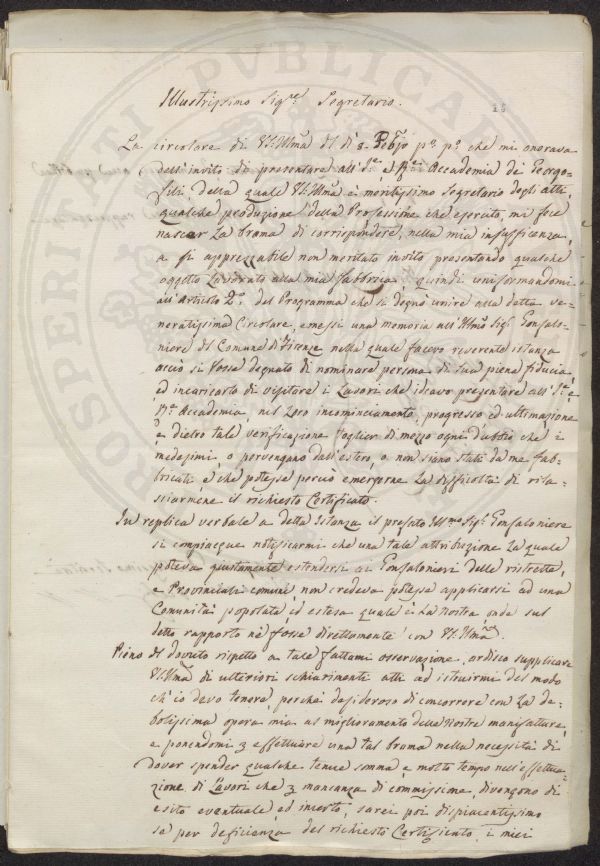 Illustrissimo Sig.re Segretario.
25
La circolare di VS. Illma del dì 8. Febbjo p.º p.º che mi onorava
dell'invito di presentare all'I.e e R.e Accademia de' Georgo=
fili, della quale VS. Illma è meritissimo Segretario degli atti,
qualche produzione della Professione che esercito, mi fece
nascer la brama di corrispondere, nella mia insufficenza,
a sì apprezzabile non meritato invito presentando qualche
oggetto Lavorato alla mia Fabbrica; quindi uniformandomi
all'Articolo 2.º del Programma che si degnò unire alla detta ve=
neratissima Circolare, emessi una memoria all'Illmo Sig.r Gonfalo=
niere del Comune di Firenze nella quale facevo reverente istanza
acciò si fosse degnato di nominare persona di sua piena fiducia,
ed incaricarlo di visitare i Lavori che ideavo presentare all'I.e e
R.e Accademia, nel Loro incominciamento, progresso ed ultimazione
e dietro tale verificazione toglier di mezzo ogni dubbio che i
medesimi o pervengano dall'estero, o non siano stati da me fab=
bricati, e che potesse perciò emergerne la difficoltà di rila=
sciarmene il richiesto Certificato.
In replica verbale a detta istanza il prefato Ill.mo Sig.r Gonfaloniere
si compiacque notificarmi che una tale attribuzione la quale
poteva giustamente estendersi ai Gonfalonieri delle ristrette,
e Provinciali comuni, non credeva potesse applicarsi ad una
Comunità popolata ed estesa quale è la nostra, onde sul
detto rapporto ne fosse direttamente con VS. Illma
Pieno del dovuto rispetto a tale fattami osservazione, ardisco supplicare
VS. Illma di ulteriori schiarimenti atti ad istruirmi del modo
ch'io devo tenere, perchè desideroso di concorrere con la de=
bolissima opera mia al miglioramento delle Nostre manifatture,
e ponendomi p effettuare una tal brama nella necessità di
dover spender qualche tenue somma e molto tempo nell'effettua=
zione di Lavori che p mancanza di commissione, divengono di
esito eventuale ed incerto, sarei poi dispiacentissimo
se per deficienza del richiesto Certificato, i miei